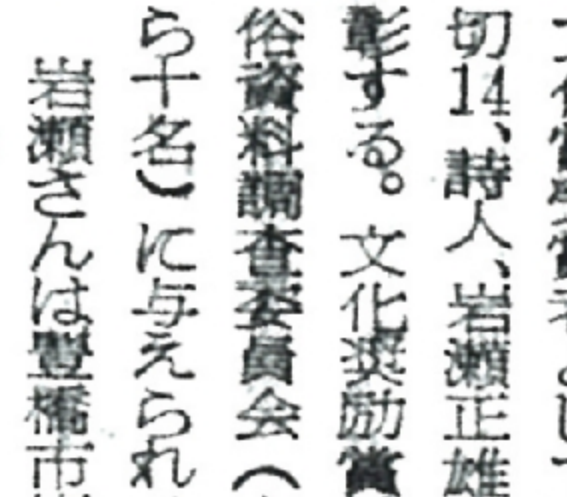 切14、詩人、岩瀬正雄
彰する。文化奨励賞
俗資料調査委員会（
ら十名）に与えられ
岩瀬さんは豊橋市